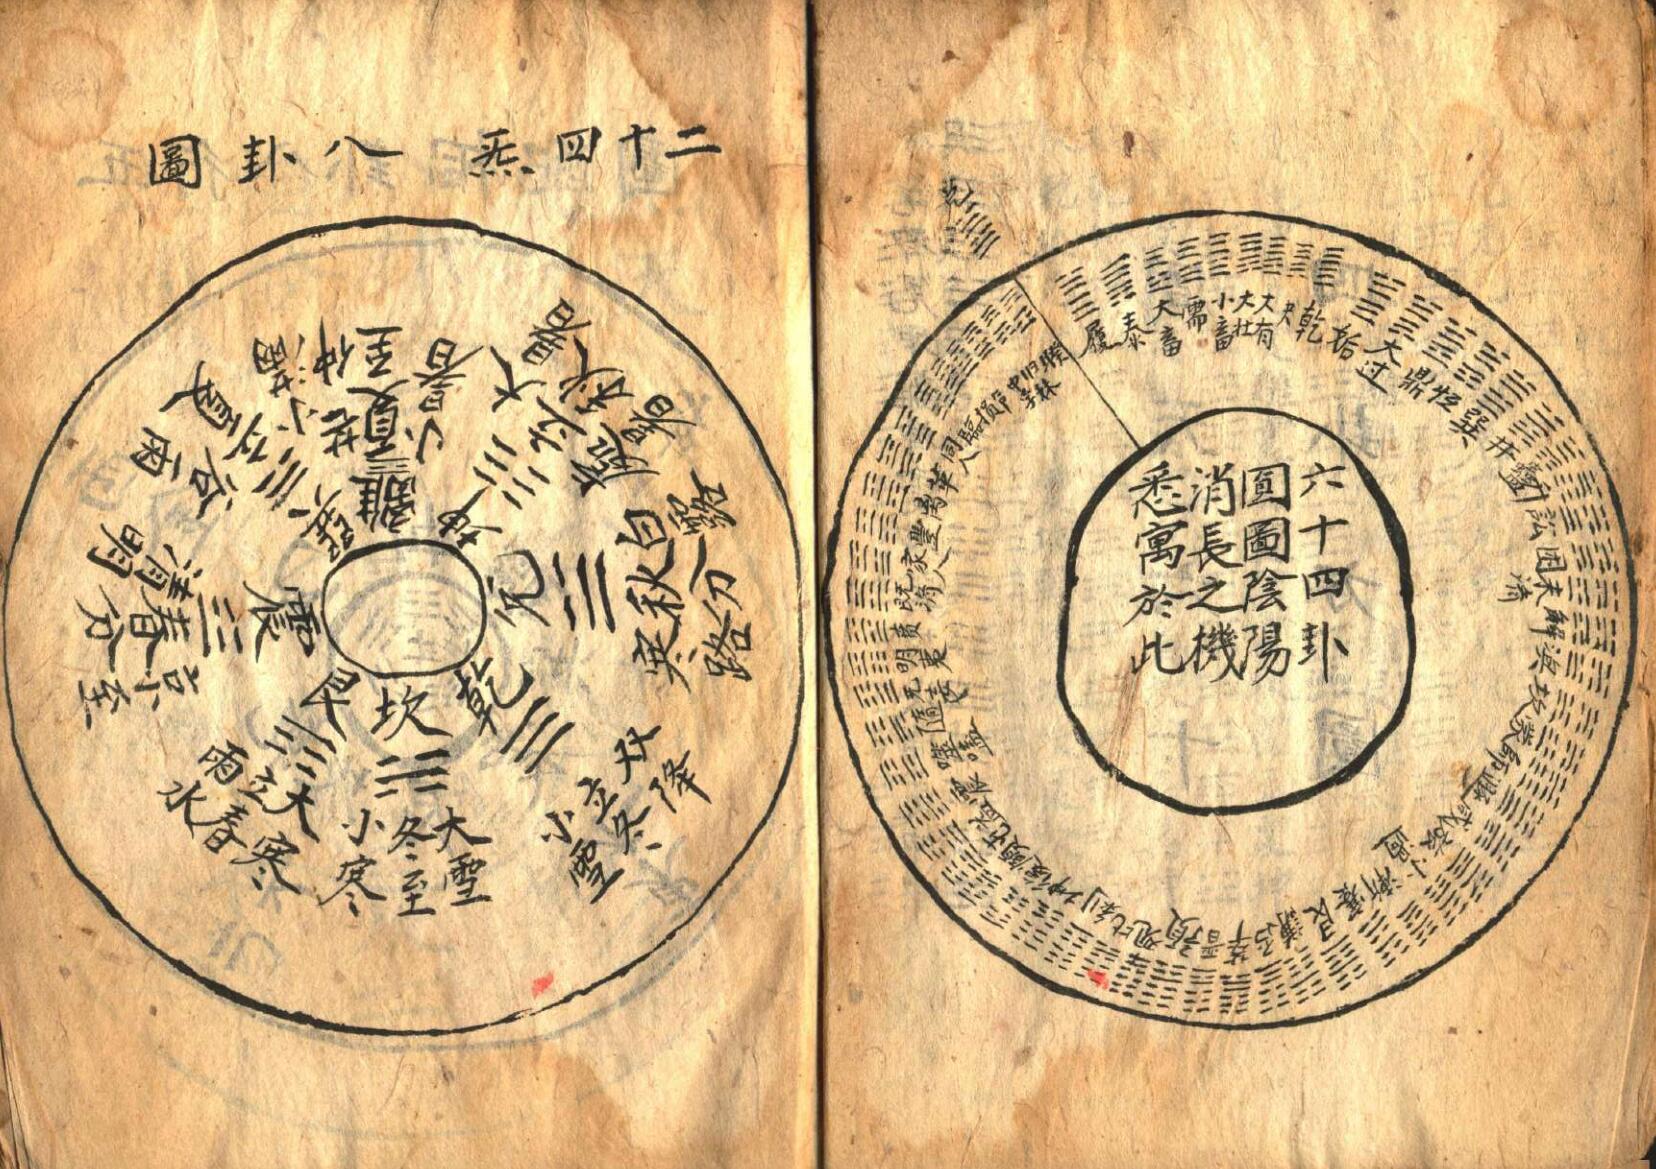 六十四卦
圓圖陰陽
消長之機
悉寓於此
乾
姤
大过
鼎
恒
巽
井
蠱
訟
困
未済
解
渙
坎
蒙
師
咸
小過
漸
蹇
艮
謙
否
萃
晋
預
观
比
剝
坤
復
頤
屯
益
噬
嗑
隨
无
明夷
賁
既濟
家人
豐
革
同人
臨
損
中孚
睽
履
泰
大畜
需
小畜
大壯
大有
夬
二十四炁八卦圖
離
坤
兌
乾
坎
艮
震
巽
小暑
夏至
芒種
大暑
立秋
處暑
白露
秋分
寒路
双降
立冬
小雪
大雪
冬至
小寒
大寒
立春
雨水
春分
清明
谷雨
立夏
小